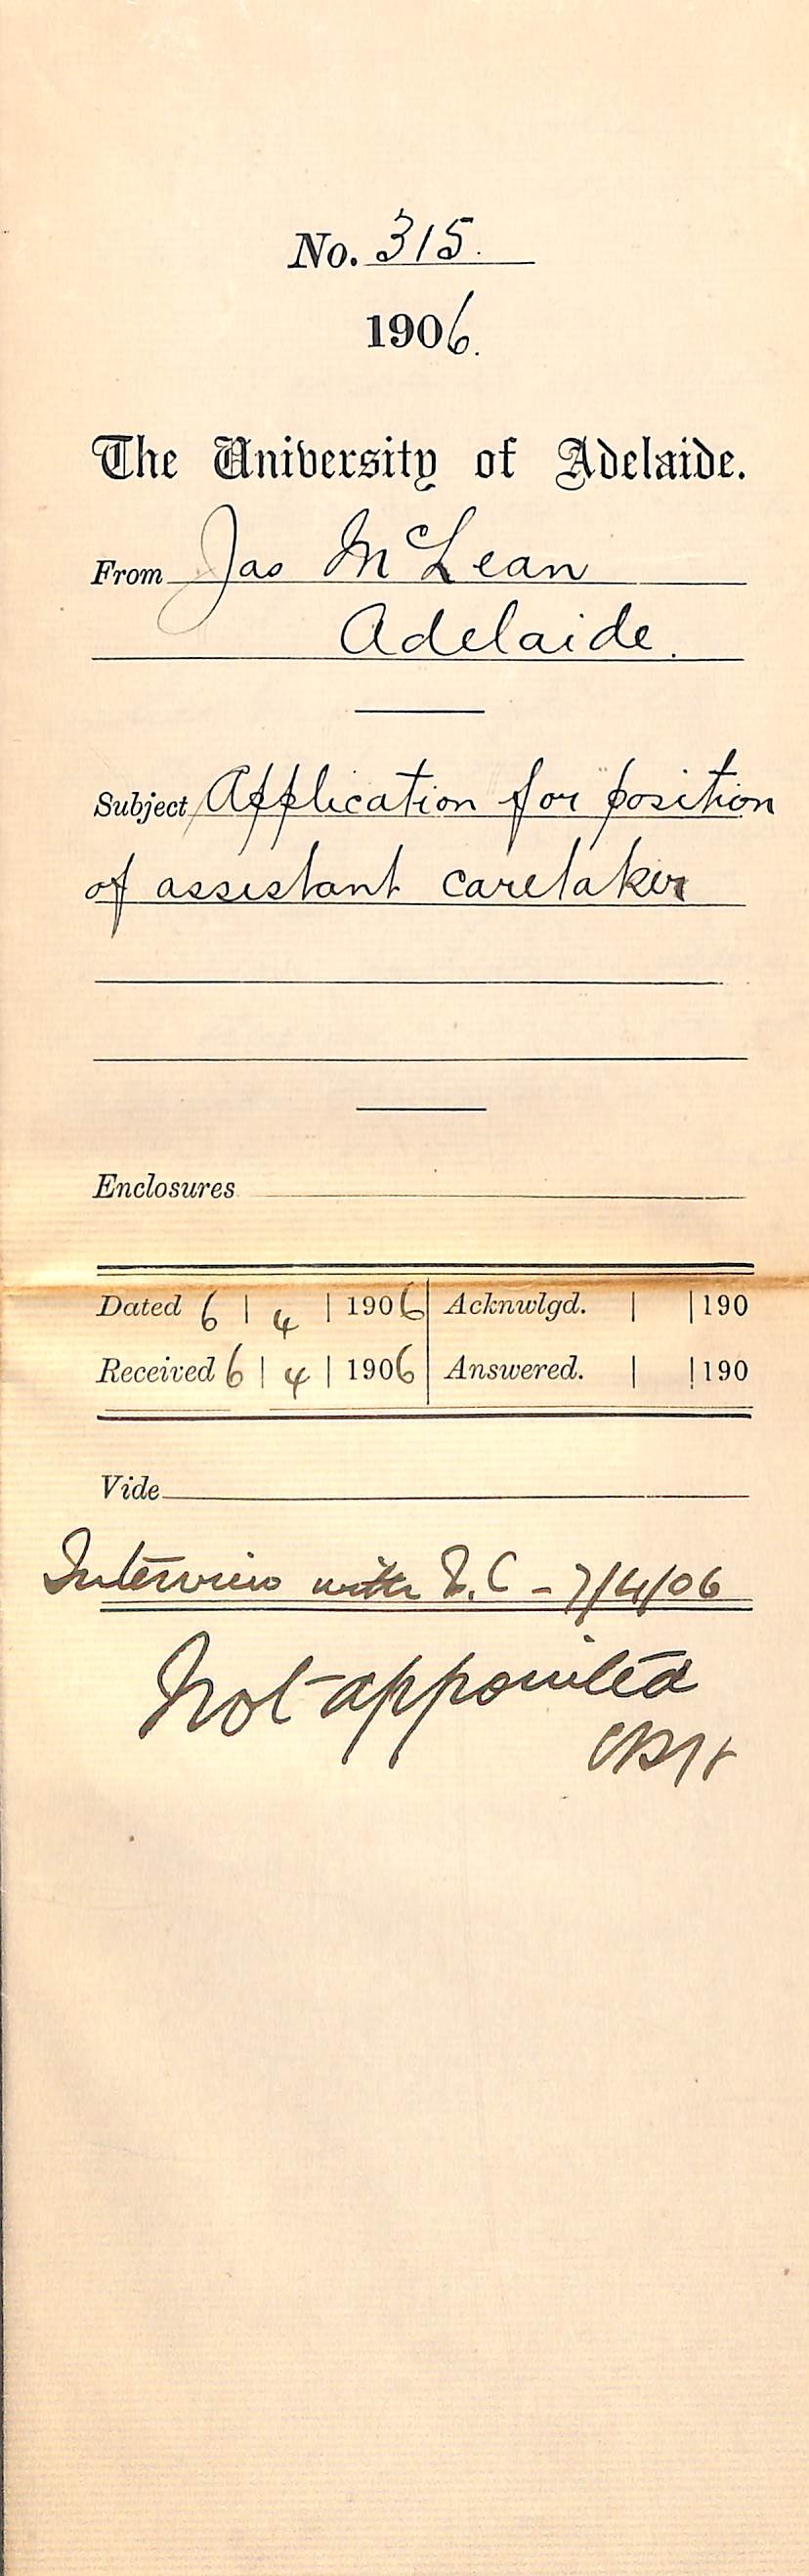 No. 315.
1906.
The University of Adelaide.
From Jas McLean
Adelaide.
Subject Application for position
of assistant caretaker
Enclosures
Dated 6 | 4 | 1906 Acknwlgd. | | 190
Received 6 | 4 | 1906 Answered. | | 190
Vide
Interview with C - 7/4/06
Not appointed